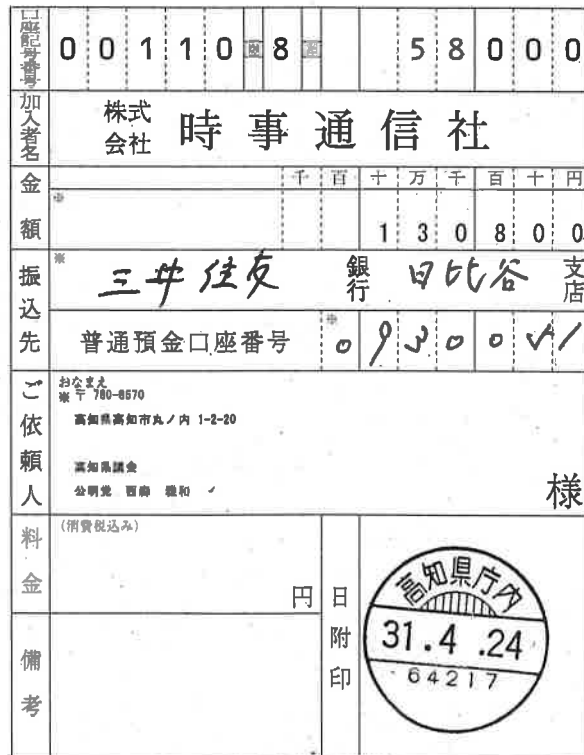 口座記号番号 00110 8 58000
加入者名 株式会社 時事通信社
金額 ※ 千 百 十 万 千 百 十 円
130800
振込先 ※ 三井住友 銀行 日比谷 支店
普通預金口座番号 ※
ご依頼人 おなまえ
※〒 780-8570
高知県高知市丸ノ内 1-2-20
高知県議会
公明党 西森 雅和
様
料金 (消費税込み) 円
備考
日附印
高知県庁内
31.4.24
64217